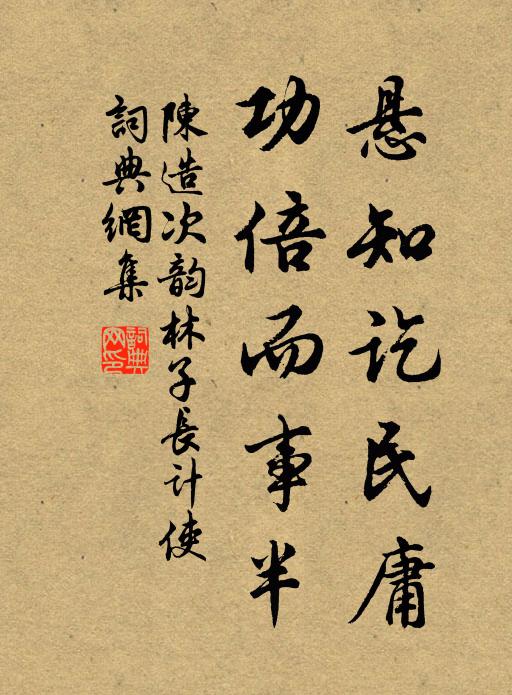 悬知讫民庸
功倍而事半
陳造次韵林子長计使
詞典網集
詞典网印